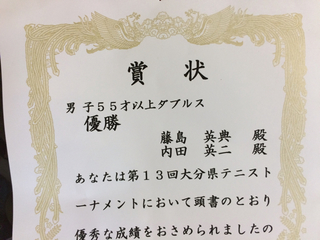 賞状
男子５５才以上ダブルス
優勝
藤島 英典 殿
内田 英二 殿
あなたは第１３回大分県テニスト
ーナメントにおいて頭書のとおり
優秀な成績をおさめられましたの